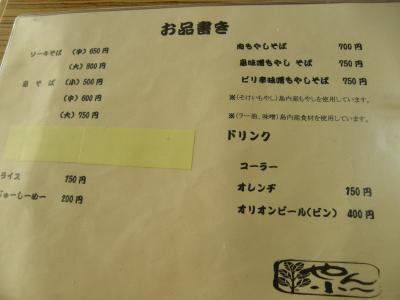 お品書き
ソーキそば (中) 650円
(大) 800円
島そば (小) 500円
(中) 600円
(大) 750円
ライス 150円
じゅーしーめー 200円
肉もやしそば 700円
島味噌もやしそば 750円
ピリ辛味噌もやしそば 750円
※(そけいもやし)島内産もやしを使用しています。
※(ラー油、味噌)島内産食材を使用しています。
ドリンク
コーラー
オレンヂ 150円
オリオンビール(ビン) 400円